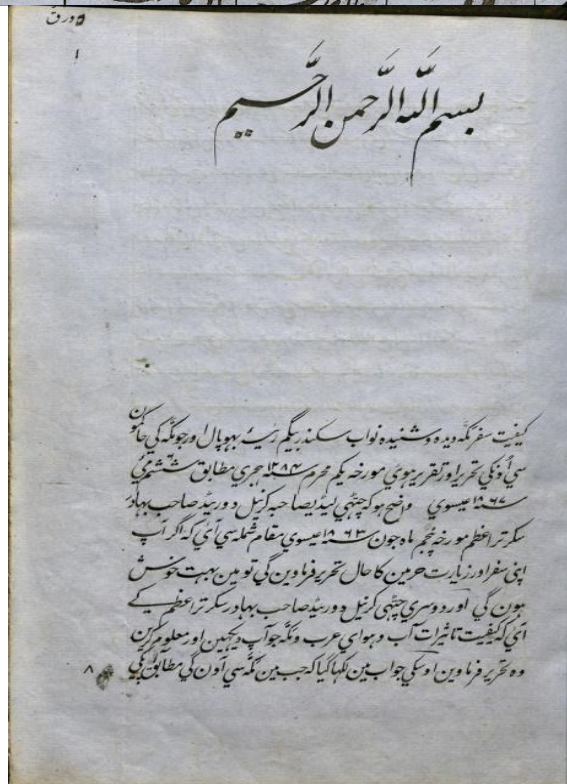 ۵ ورق
۱
بسم الله الرحمن الرحيم
کیفیت سفر مکّه دیده و شنیده نواب سکندر بیگم رئیسہ بہوپال اور جو مکّہ کی حاکمون
سی اونکی تحریر اور تقریر ہوئی مورخہ یکم محرم ۱۲۸۴ ہجری مطابق ششم مئی
۱۸۶۷ عیسوی واضح ہو کہ چٹھی لیڈیصاحبہ کرنیل دیورینڈ صاحب بہادر
سکرتر اعظم مورخہ پنجم ماہ جون ۱۸۶۳ عیسوی مقام شملہ سی آئی کہ اگر آپ
اپنی سفر اور زیارت حرمین کا حال تحریر فرماوین گی تو مین بہت خوش
ہون گی اور دوسری چٹھی کرنیل دیورینڈ صاحب بہادر سکرتر اعظم کے
آئی کہ کیفیت تاثیرات آب و ہوای عرب و مکّہ جو آپ دیکہین اور معلوم کرین
وہ تحریر فرماوین اوسکی جواب مین لکہا گیا کہ جب مین مکّہ سی آئون گی مطابق آپکی
۸